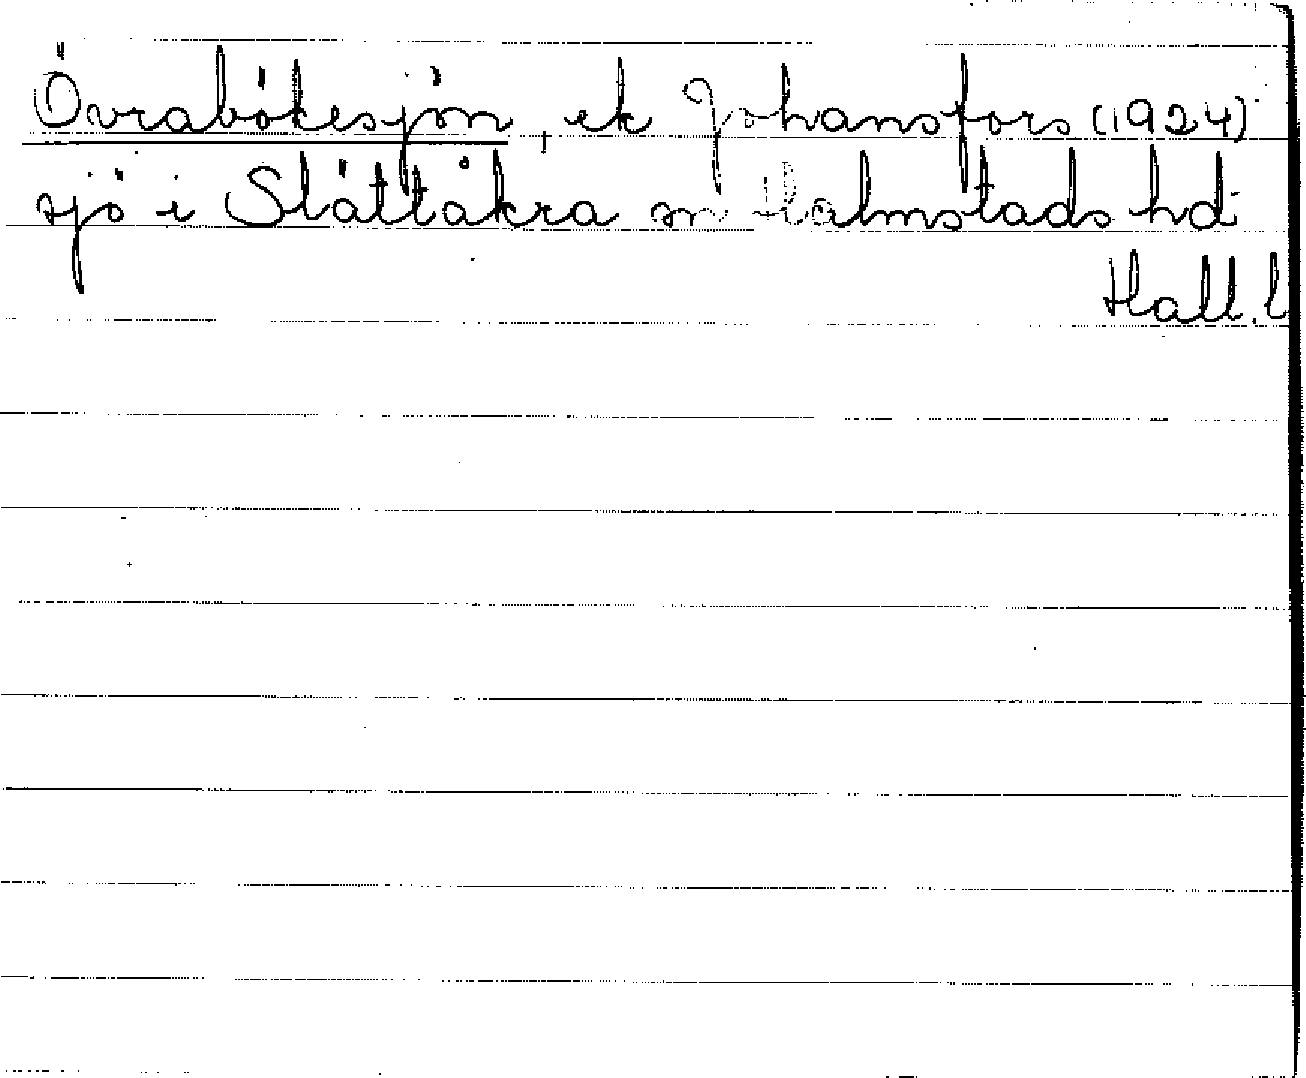 Övrabökesjön, ek Johansfors (1924)
sjö i Slättåkra sn Halmstads hd
Hall. l